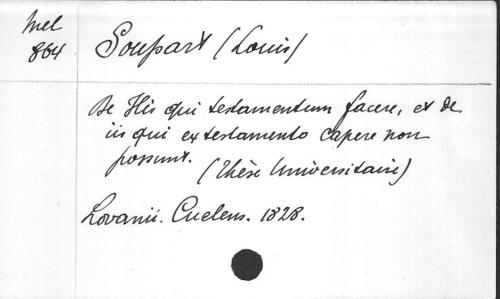 Mel
864
Soupart (Louis)
De His qui testamentum facere, et de
iis qui ex testamento capere non
possunt.
(Thèse Universitaire)
Lovanii. Cuelens. 1828.